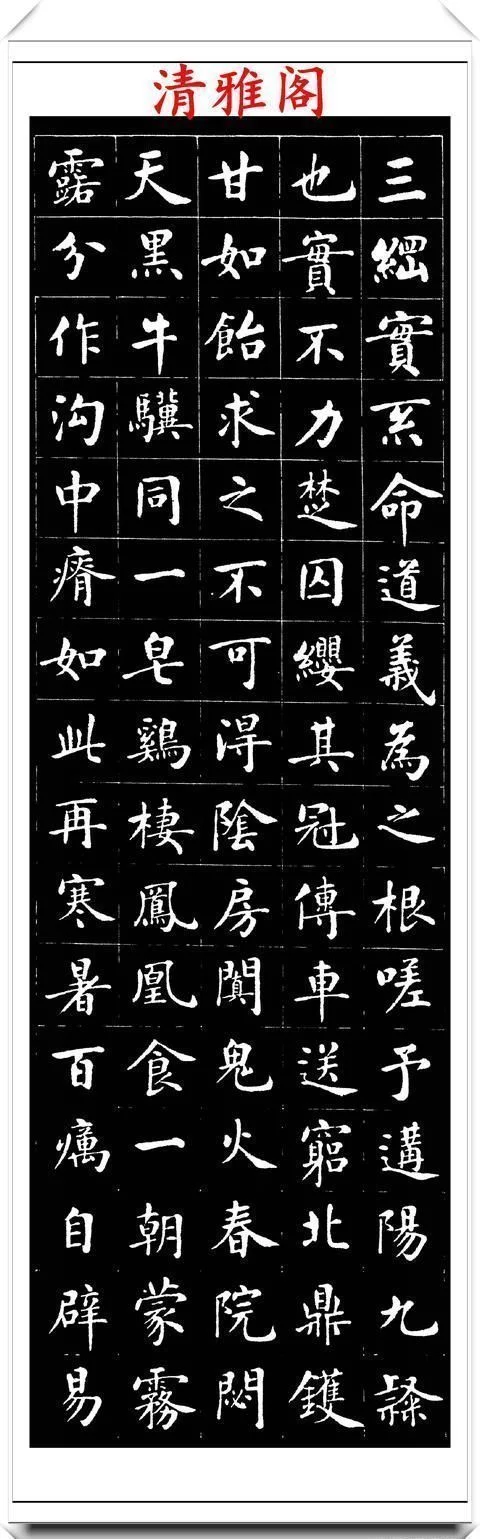 清雅阁
三綱實系命道義為之根嗟予遘陽九隸
也實不力楚囚纓其冠傳車送窮北鼎鑊
甘如飴求之不可得陰房闃鬼火春院閟
天黑牛驥同一皂鷄棲鳳凰食一朝蒙霧
露分作沟中瘠如此再寒暑百癘自辟易